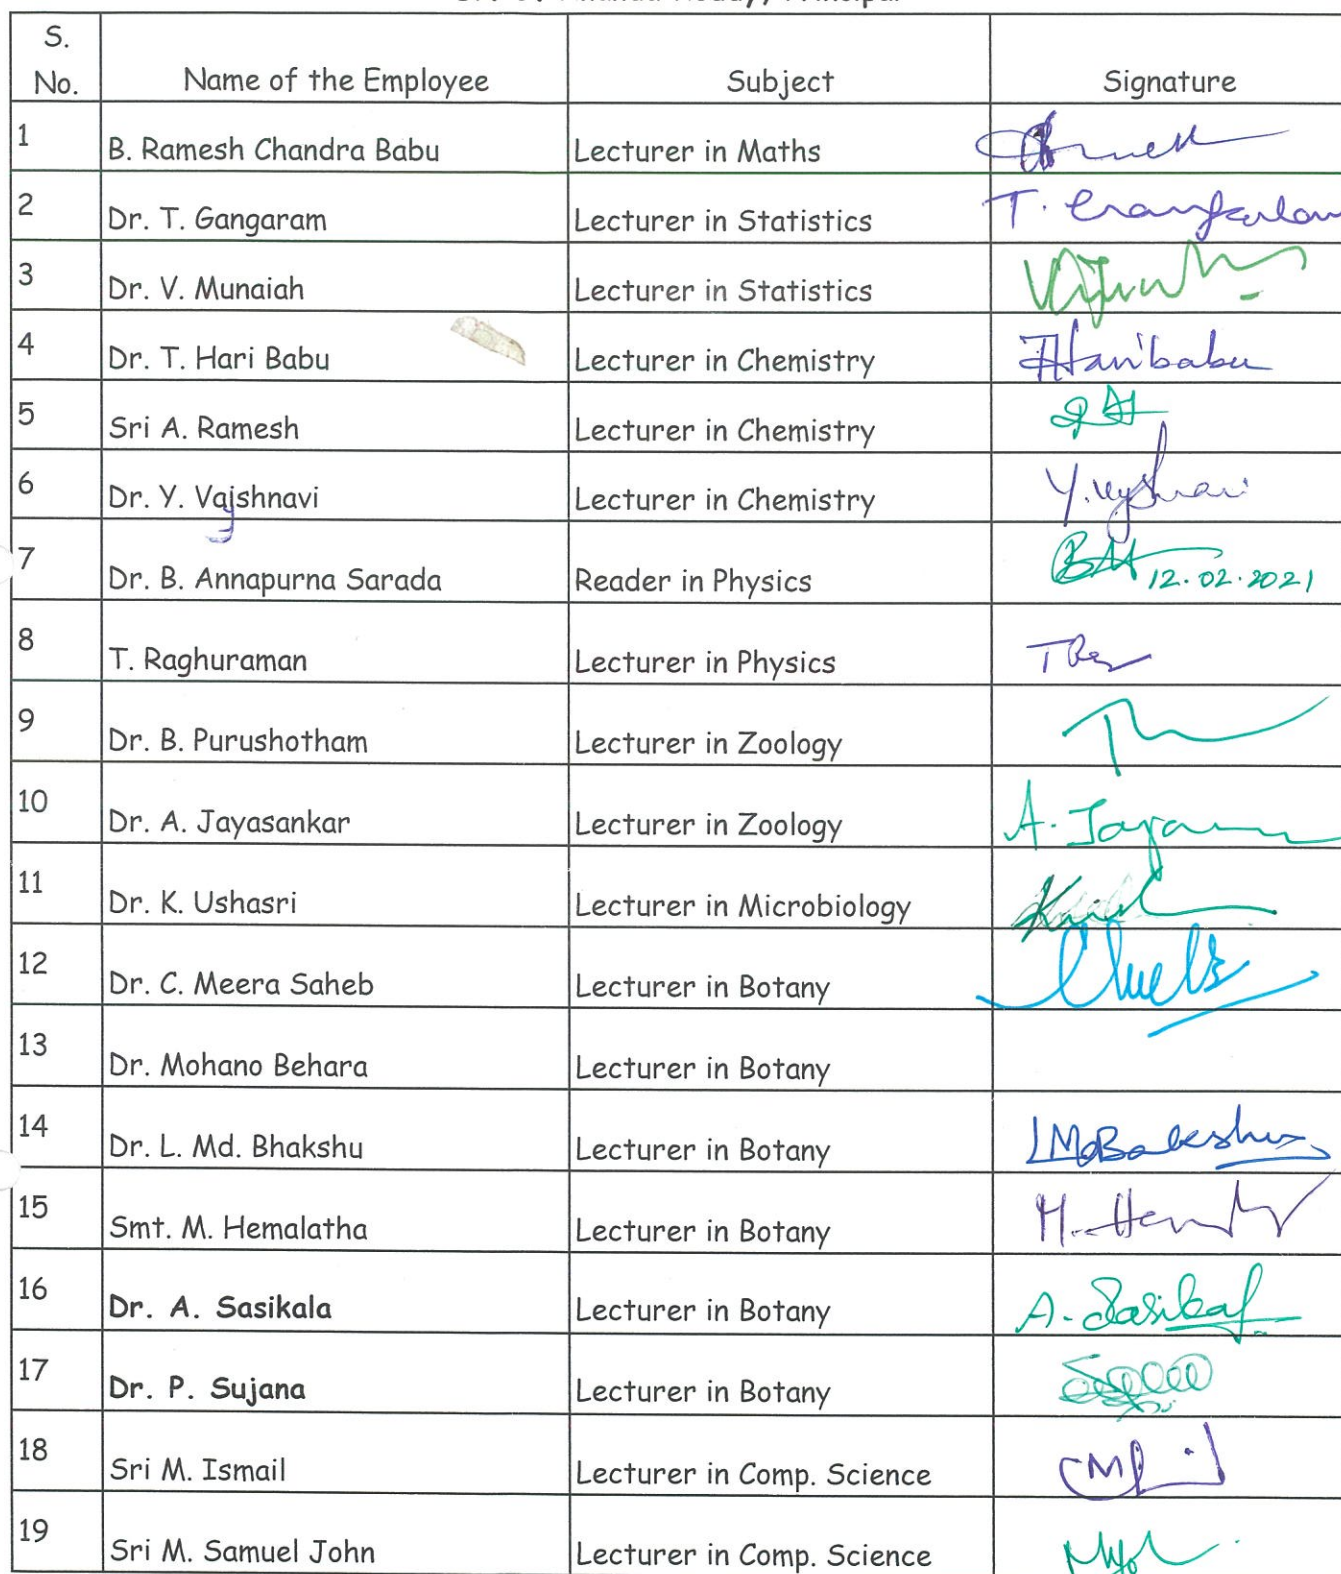 S.
No. Name of the Employee Subject Signature
1 B. Ramesh Chandra Babu Lecturer in Maths
2 Dr. T. Gangaram Lecturer in Statistics T. Gangaram
3 Dr. V. Munaiah Lecturer in Statistics
4 Dr. T. Hari Babu Lecturer in Chemistry THaribabu
5 Sri A. Ramesh Lecturer in Chemistry
6 Dr. Y. Vajshnavi Lecturer in Chemistry Y. Vyshnavi
7 Dr. B. Annapurna Sarada Reader in Physics 12.02.2021
8 T. Raghuraman Lecturer in Physics
9 Dr. B. Purushotham Lecturer in Zoology
10 Dr. A. Jayasankar Lecturer in Zoology
11 Dr. K. Ushasri Lecturer in Microbiology
12 Dr. C. Meera Saheb Lecturer in Botany
13 Dr. Mohano Behara Lecturer in Botany
14 Dr. L. Md. Bhakshu Lecturer in Botany LMdBakshu
15 Smt. M. Hemalatha Lecturer in Botany
16 Dr. A. Sasikala Lecturer in Botany A. Sasikal
17 Dr. P. Sujana Lecturer in Botany
18 Sri M. Ismail Lecturer in Comp. Science
19 Sri M. Samuel John Lecturer in Comp. Science